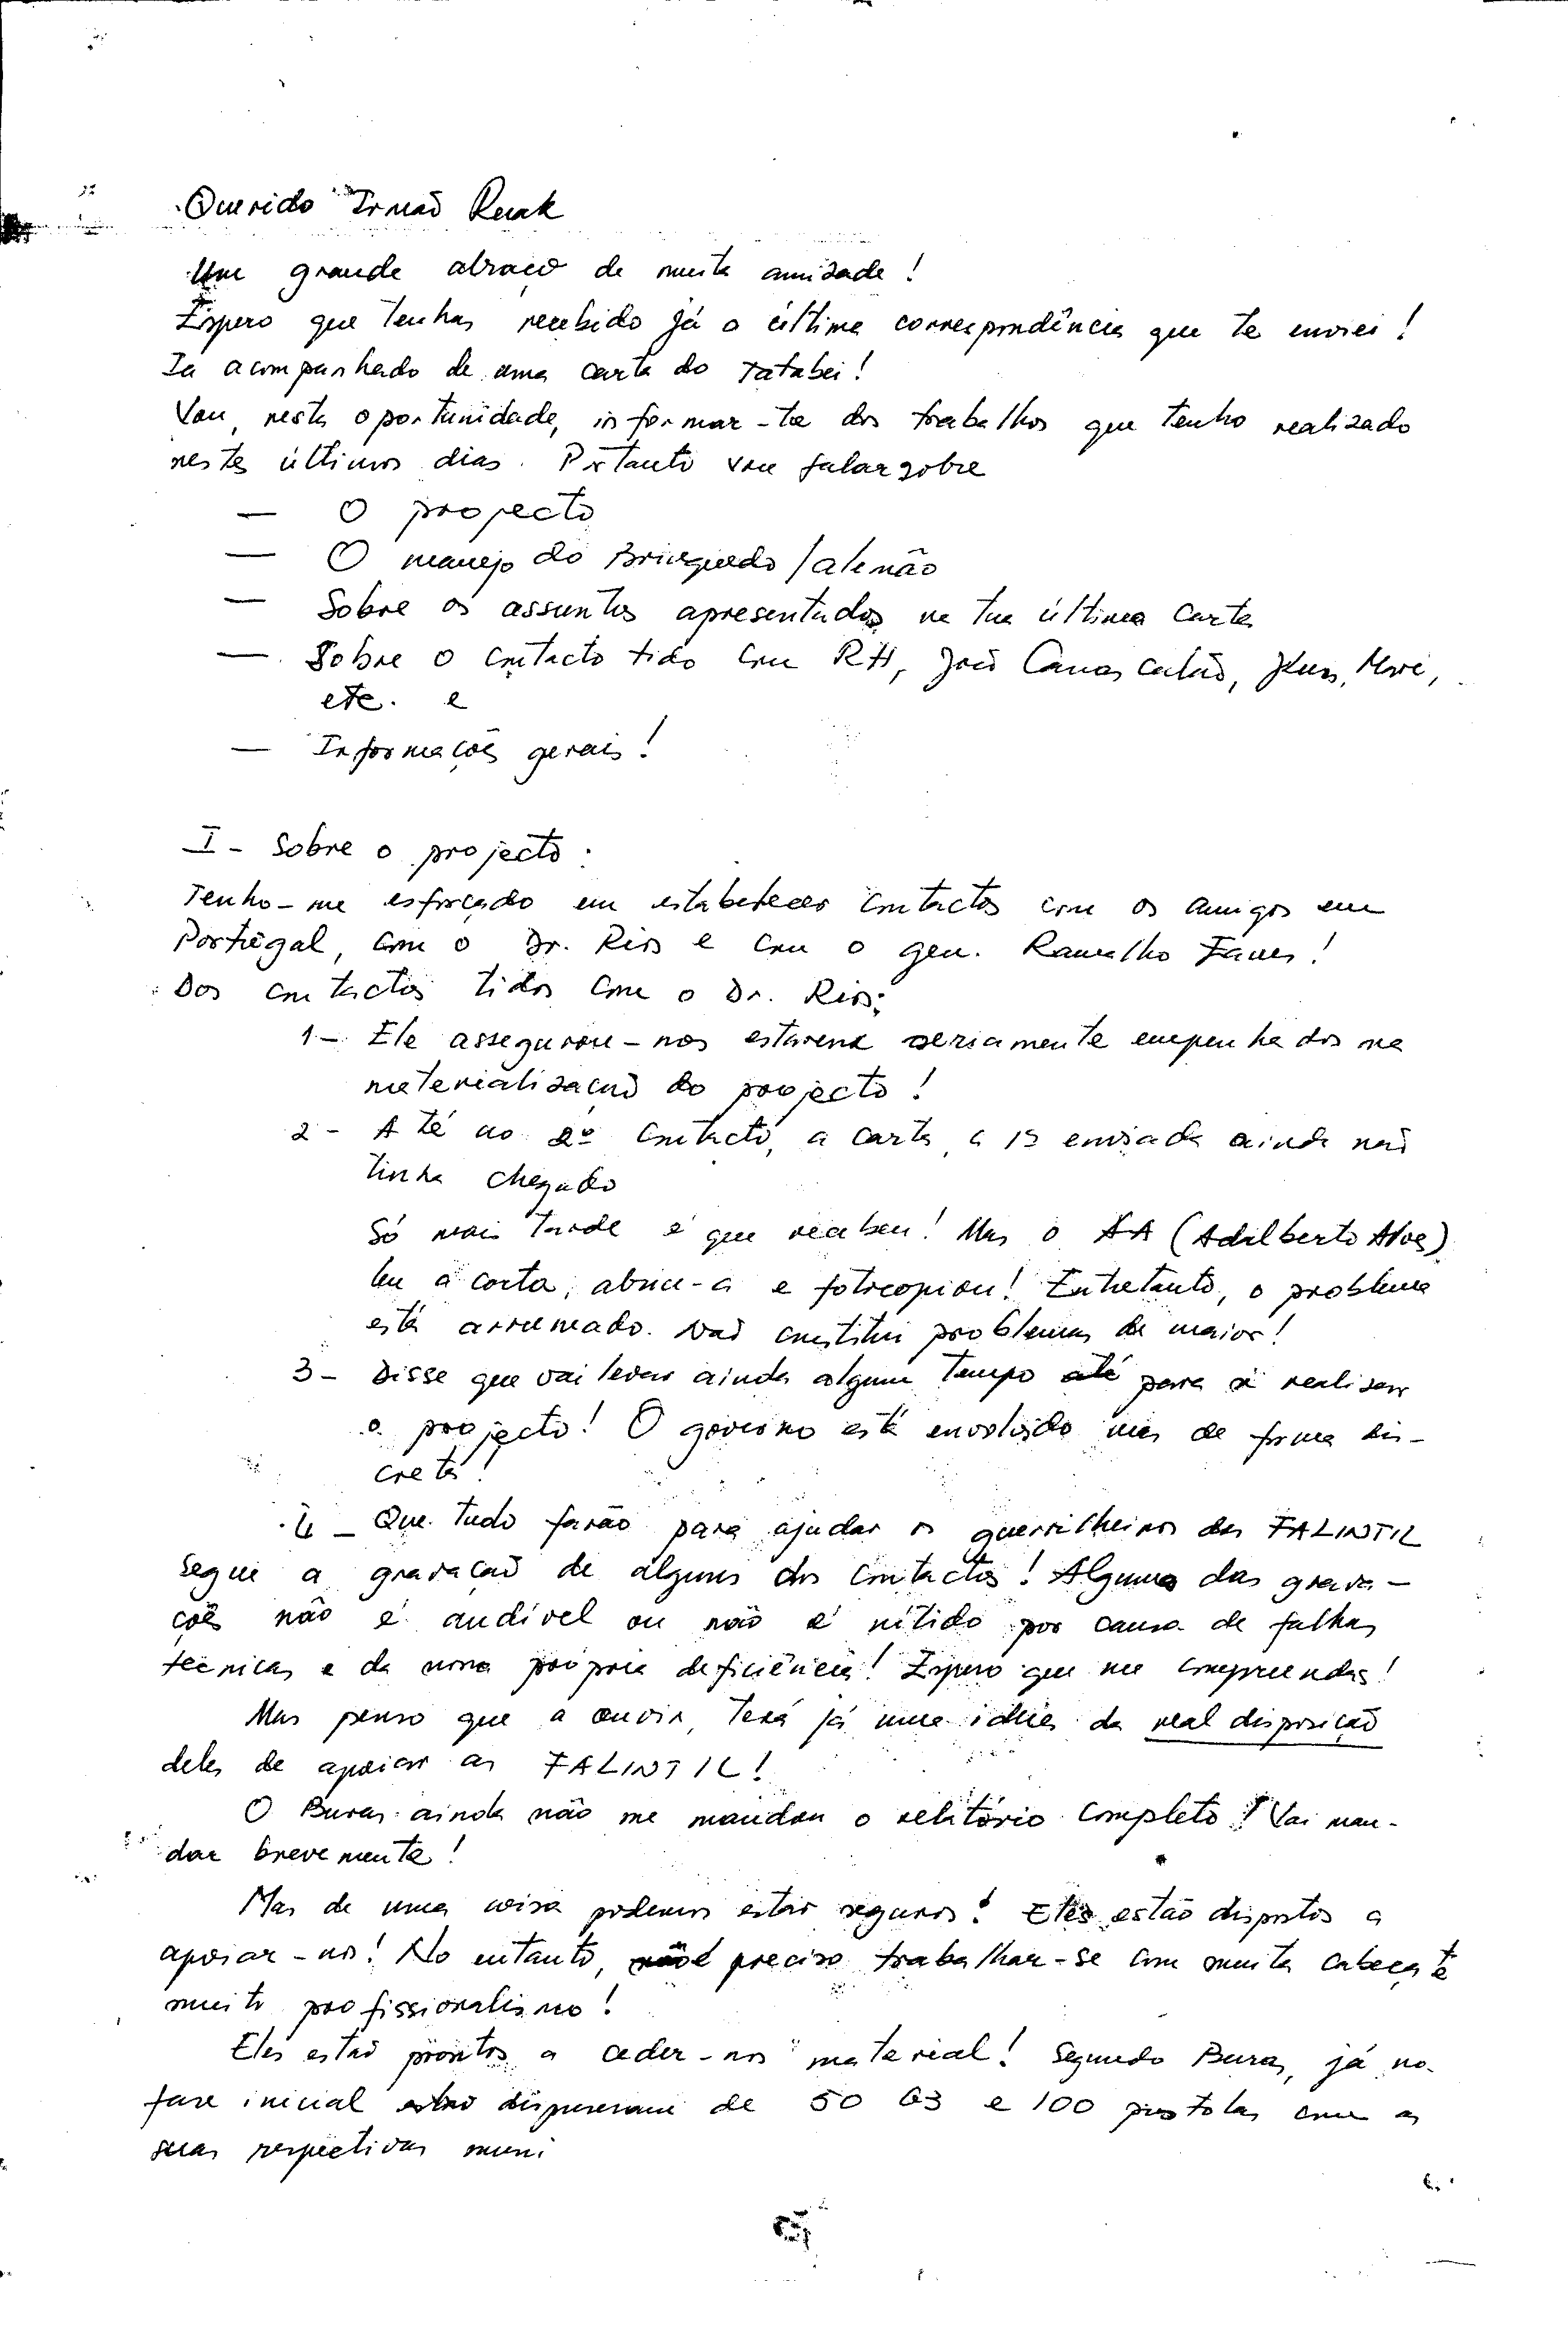 Querido Irmaõ Ruak
Um grande abraço de muita amizade!
Espero que tenhas recebido já a última correspondência que te enviei!
Ia acompanhado de uma carta do Tatabei!
Vou, nesta oportunidade, informar-te dos trabalhos que tenho realizado
nestes últimos dias. Portanto vou falar sobre
— O projecto
— O manejo do Brinquedo/alemão
— Sobre os assuntos apresentados na tua última carta
— Sobre o contacto tido com RH, João Carrascalão,
etc. e
— Informações gerais!
I - Sobre o projecto:
Tenho-me esforçado em estabelecer contactos com os amigos em
Portugal, com o Dr. Rios e com o gen. Ramalho Eanes!
Dos contactos tidos com o Dr. Rios:
1- Ele assegurou-nos estarem seriamente empenhados na
materializaçaõ do projecto!
2 - Até ao 2º contacto, a carta a enviada ainda naõ
tinha chegado
Só mais tarde é que recebeu! Mas o AA (Adalberto Alves)
leu a carta, abriu-a e fotocopiou! Entretanto, o problema
está arrumado. Naõ constitui problemas de maior!
3 - Disse que vai levar ainda algum tempo até para se realizar
o projecto! O governo está envolvido mas de forma dis-
creta!
4 - Que tudo farão para ajudar os guerrilheiros das FALINTIL
Segue a gravaçaõ de alguns dos contactos! Alguma das grava-
çoẽs não é audível ou não é nítido por causa de falhas
técnicas e da nossa própria deficiência! Espero que me compreendas!
Mas penso que a ouvir, terá já uma ideia da real disposiçaõ
deles de apoiar as FALINTIL!
O Buras ainda não me mandou o relatório completo! Vai man-
dar brevemente!
Mas de uma coisa podemos estar seguros! Eles estão dispostos a
apoiar-nos! No entanto, é preciso trabalhar-se com muita cabeça e
muito profissionalismo!
Eles estaõ prontos a ceder-nos material! Segundo Buras, já na
fase inicial dispuseram de 50 G3 e 100 pistolas com as
suas respectivas muni